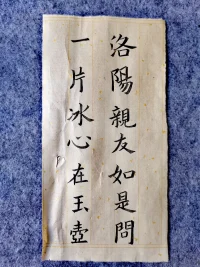 洛陽親友如是問
一片冰心在玉壺